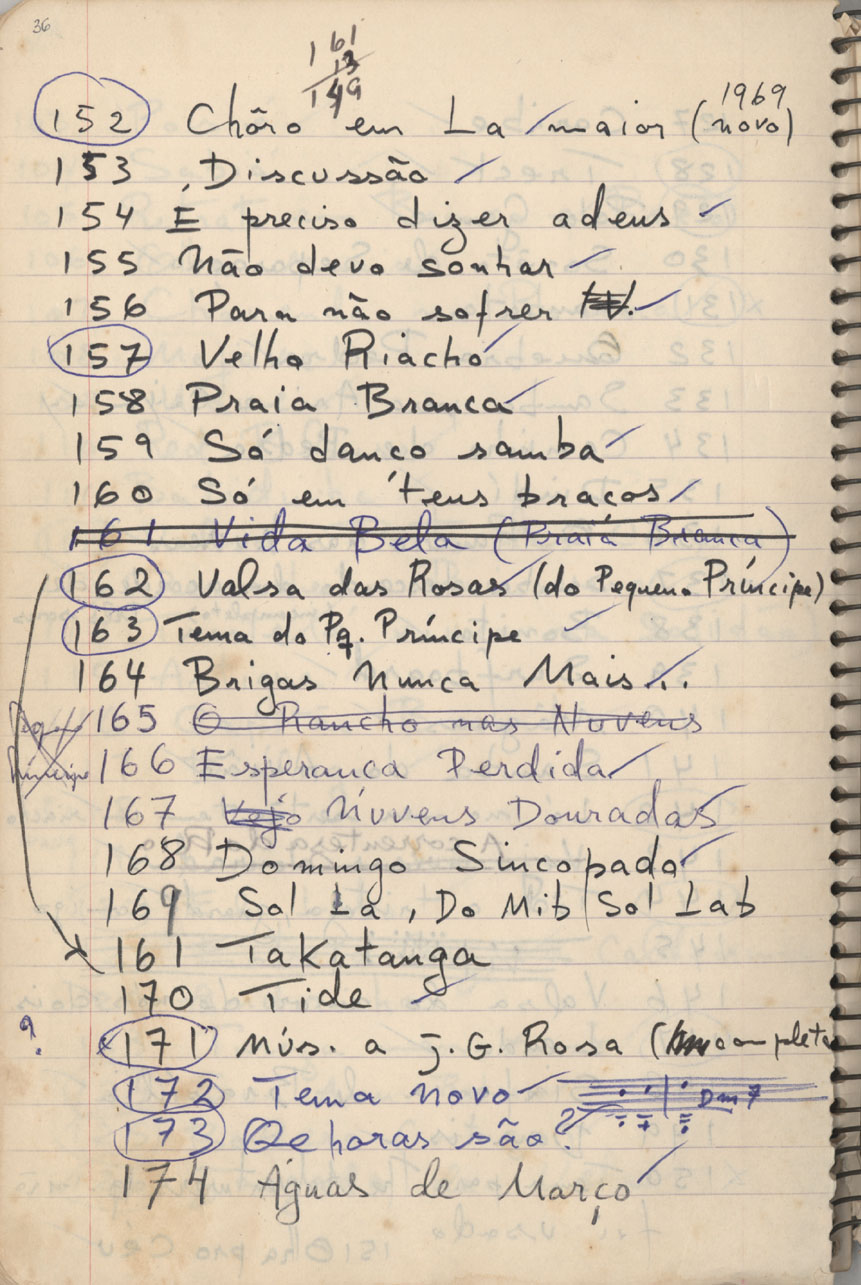 36
161
13
149
152 Chôro em La maior (1969 novo)
153 Discussão
154 É preciso dizer adeus
155 Não devo sonhar
156 Para não sofrer
157 Velho Riacho
158 Praia Branca
159 Só danco samba
160 Só em teus braços
161 Vida Bela (Praia Branca)
162 Valsa das Rosas (do Pequeno Príncipe)
163 Tema do Pq. Príncipe
164 Brigas Nunca Mais...
Pq. 165 O Rancho nas Nuvens
Príncipe 166 Esperanca Perdida
167 Vejo Nuvens Douradas
168 Domingo Sincopado
169 Sol La, Do Mib Sol Lab
161 Takatanga
170 Tide
? 171 Mús. a J.G. Rosa (incompleta
172 Tema novo Dm7
173 Qe horas são?
174 Águas de Março